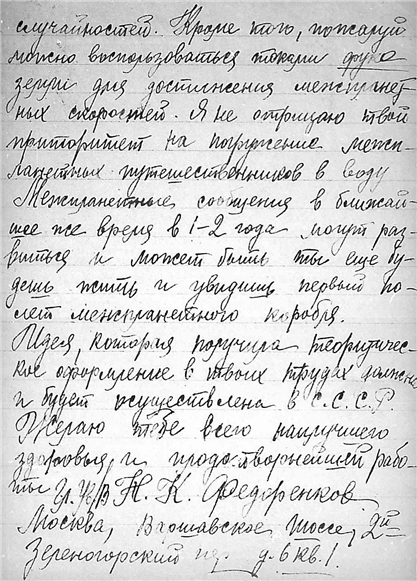 случайностей. Кроме того, пожалуй
можно воспользоваться токами фуко
земли для достижения межпланет
ных скоростей. Я не отрицаю твой
приоритет на погружение межп-
ланетных путешественников в воду
Межпланетные сообщения в ближай-
шее же время в 1-2 года могут раз-
виться и может быть ты еще бу-
дешь жить и увидишь первый по-
лет межпланетного корабля.
Идея, которая получила теоритичес-
кое оформление в твоих трудах должна
и будет осуществлена в С.С.С.Р.
Желаю тебе всего наилучшего
здоровья, и продотворнейшей рабо-
ты Н. К. Федоренков
Москва, Варшавское шоссе, 2й
Зеленогорский пер. д. 6 кв. 1.